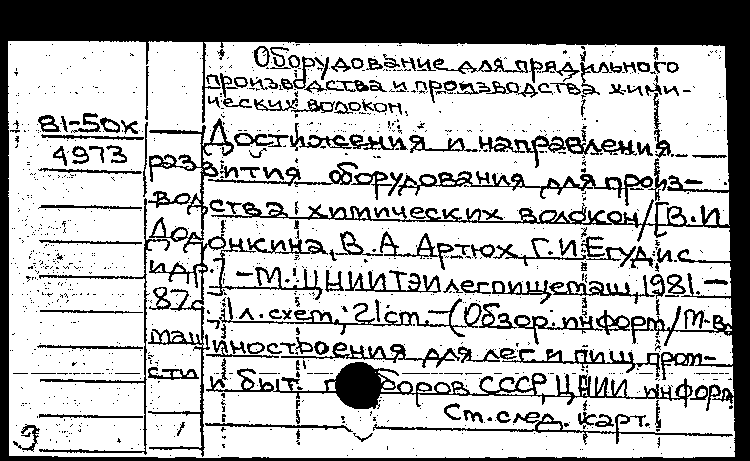 Оборудование для прядильного
производства и производства хими-
ческих волокон.
81-50к
4973
Достижения и направления
развития оборудования для произ-
водства химических волокон/[В.И.
Додонкина, В.А. Артюх, Г.И. Егудис
и др.] - М.: ЦНИИТЭИлегпищемаш, 1981. -
87с., 1л. схем.; 21см. - (Обзор. информ./М-во
машиностроения для лег. и пищ. пром-
сти и быт. СССР, ЦНИИ информ.
Ст. след. карт.
9
1